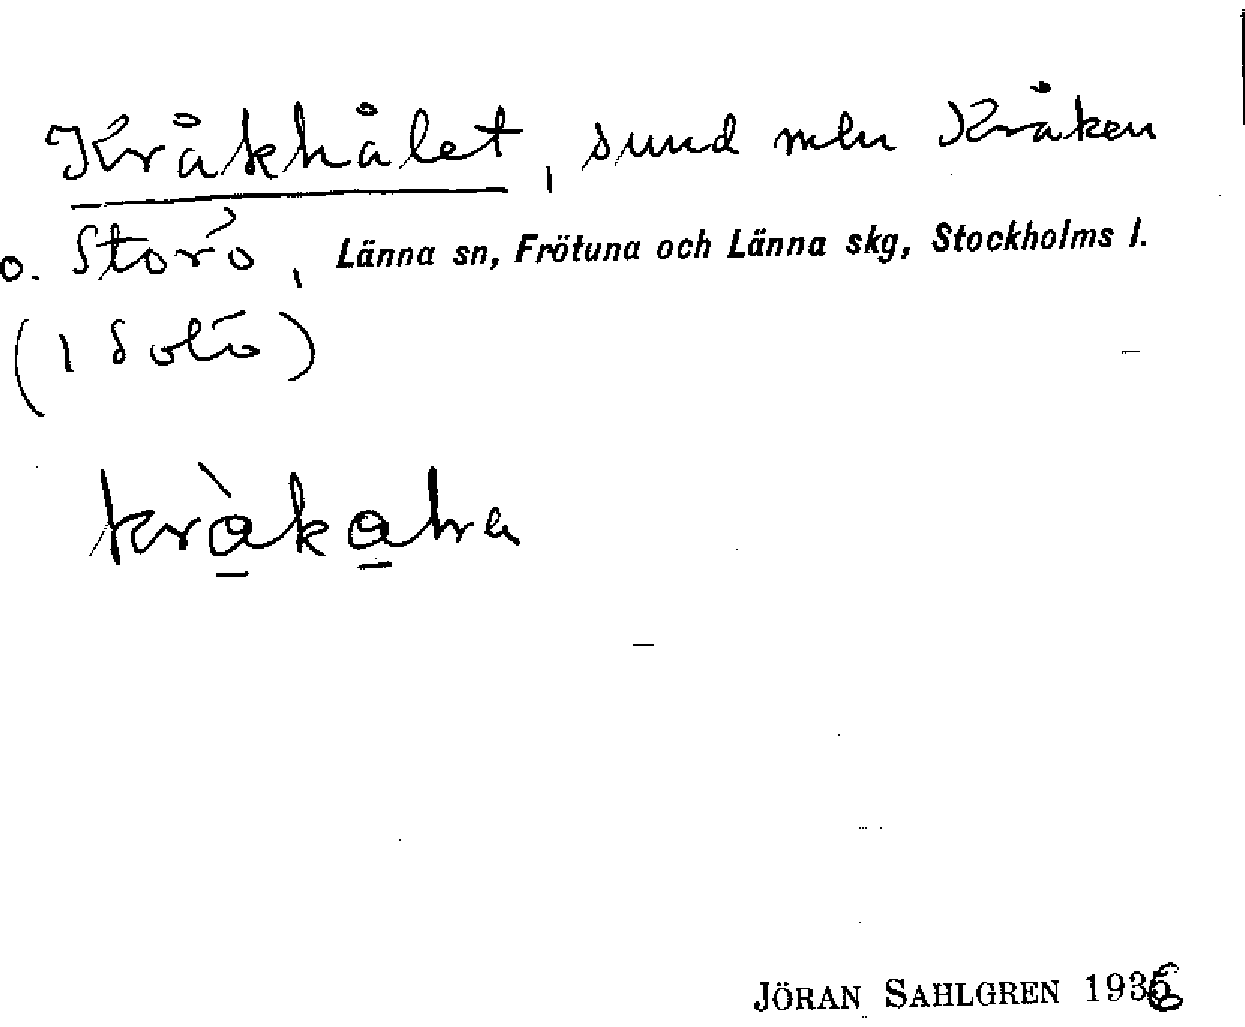 Kråkhålet, sund mln Kråken
o. Storö, Länna sn, Frötuna och Länna skg, Stockholms l.
(1 Solö)
JÖRAN SAHLGREN 1936